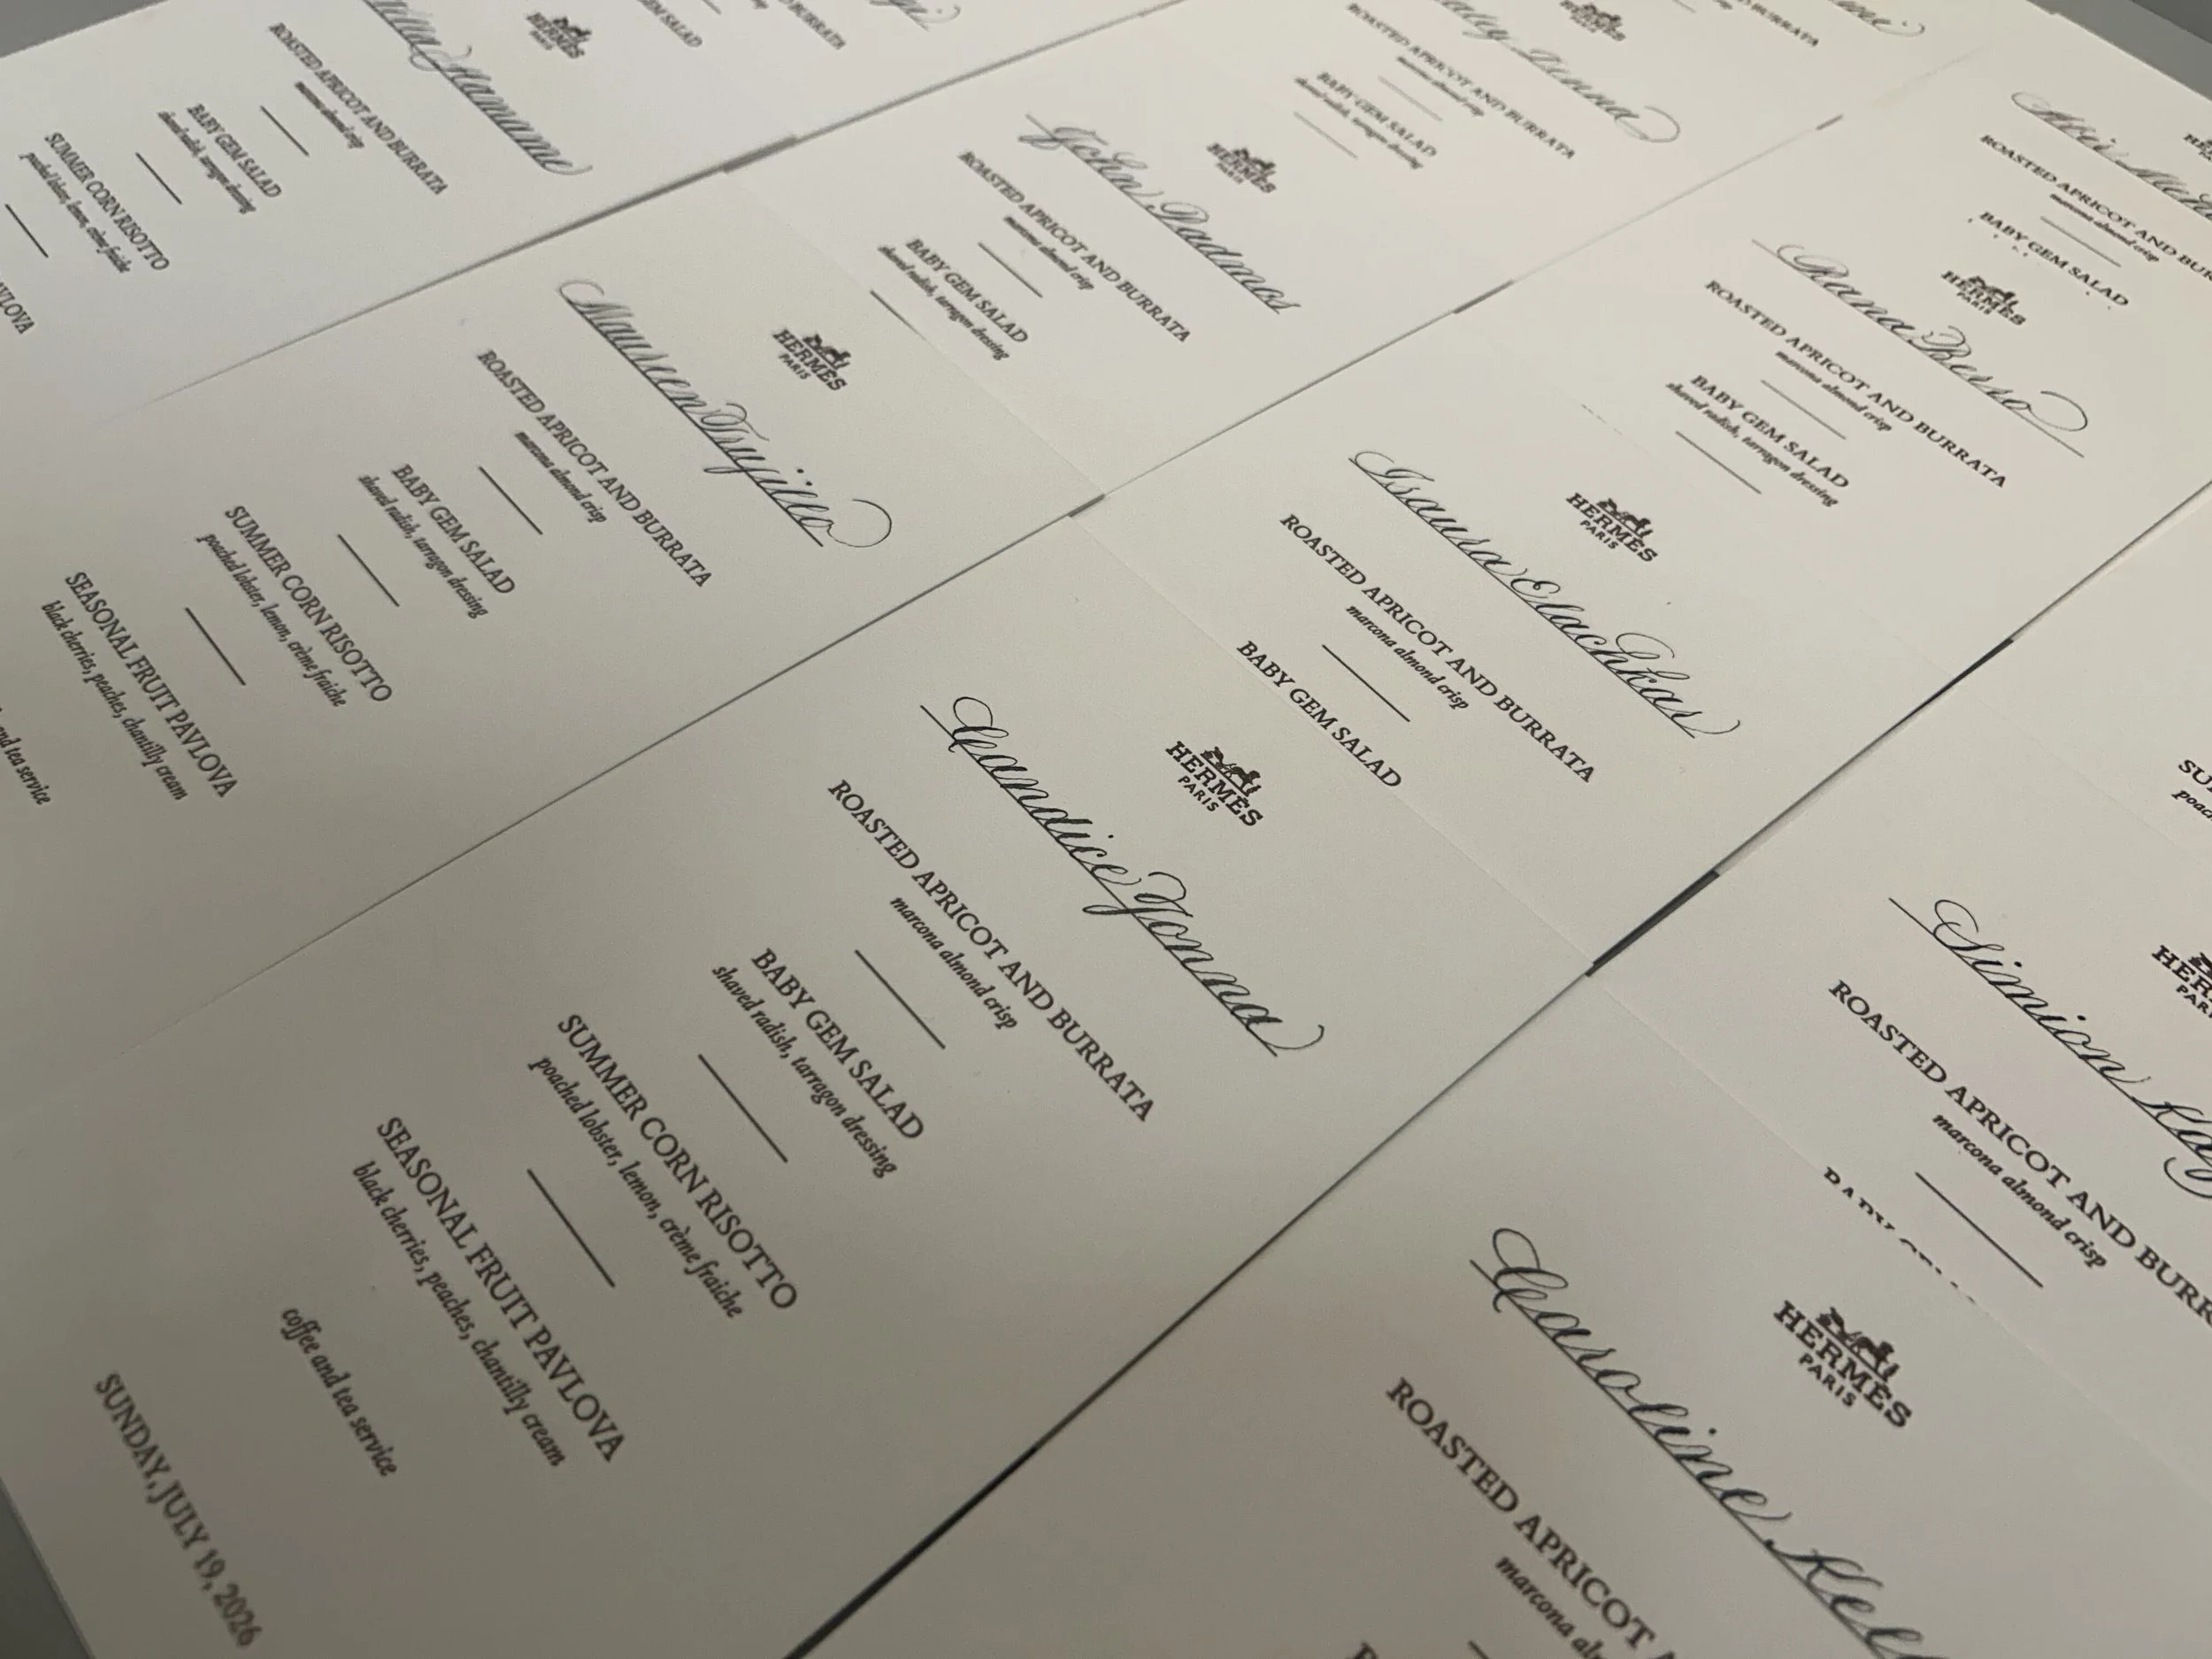 HERMÈS
PARIS
Candice Jonna
ROASTED APRICOT AND BURRATA
marcona almond crisp
BABY GEM SALAD
shaved radish, tarragon dressing
SUMMER CORN RISOTTO
poached lobster, lemon, crème fraiche
SEASONAL FRUIT PAVLOVA
black cherries, peaches, chantilly cream
coffee and tea service
SUNDAY, JULY 19, 2026
HERMÈS
PARIS
Maureen Trujillo
ROASTED APRICOT AND BURRATA
marcona almond crisp
BABY GEM SALAD
shaved radish, tarragon dressing
SUMMER CORN RISOTTO
poached lobster, lemon, crème fraiche
SEASONAL FRUIT PAVLOVA
black cherries, peaches, chantilly cream
and tea service
HERMÈS
PARIS
ROASTED APRICOT AND BURRATA
marcona almond crisp
BABY GEM SALAD
shaved radish, tarragon dressing
SUMMER CORN RISOTTO
poached lobster, lemon, crème fraiche
HERMÈS
PARIS
John Padmos
ROASTED APRICOT AND BURRATA
marcona almond crisp
BABY GEM SALAD
shaved radish, tarragon dressing
HERMÈS
PARIS
Isaura Elachkar
ROASTED APRICOT AND BURRATA
marcona almond crisp
BABY GEM SALAD
HERMÈS
PARIS
Caroline
ROASTED APRICOT
marcona
HERMÈS
PARIS
Rana
ROASTED APRICOT AND BURRATA
marcona almond crisp
BABY GEM SALAD
shaved radish, tarragon dressing
Simion
ROASTED APRICOT AND
marcona almond crisp
BABY
HERMÈS
PARIS
ROASTED APRICOT AND BURRATA
marcona almond crisp
BABY GEM SALAD
shaved radish, tarragon dressing
ROASTED APRICOT AND
marcona almond crisp
BABY GEM SALAD